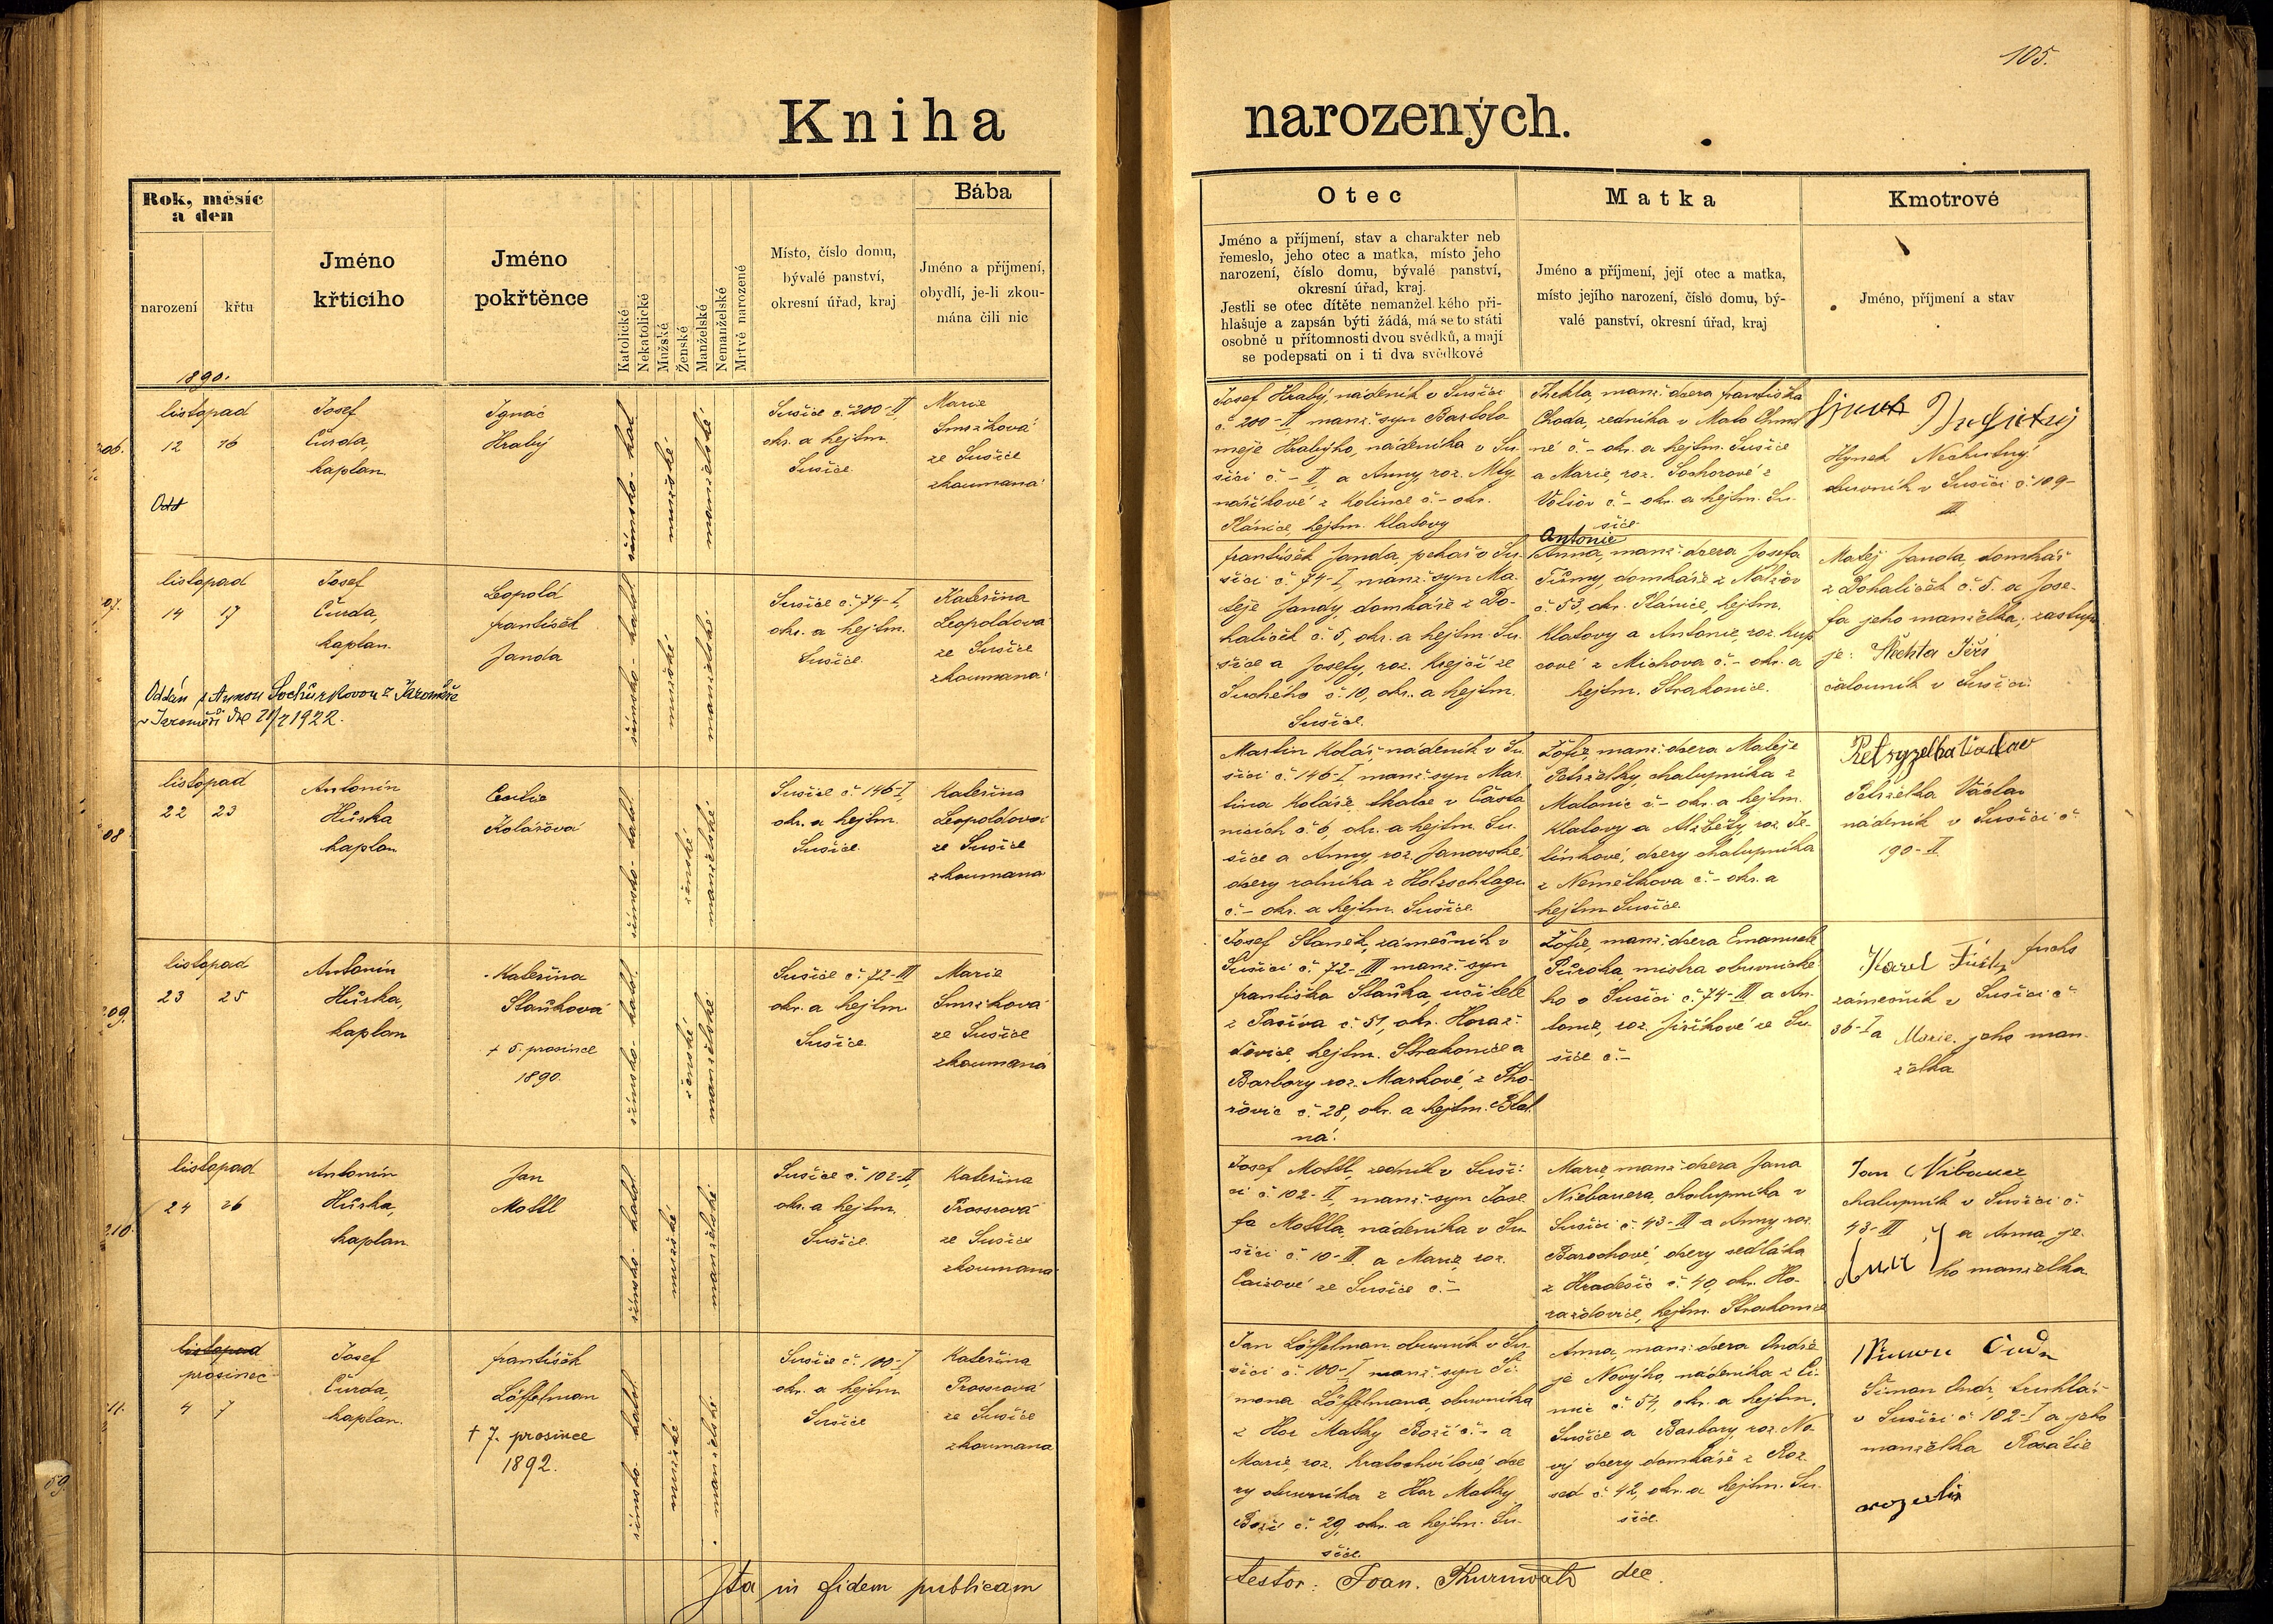 105.
Kniha narozených.
Rok, měsíc
a den
narození
křtu
Jméno
křticího
Jméno
pokřtěnce
Katolické
Nekatolické
Mužské
Ženské
Manželské
Nemanželské
Mrtvě narozené
Místo, číslo domu,
bývalé panství,
okresní úřad, kraj
Bába
Jméno a přijmení,
obydlí, je-li zkou-
mána čili nic
Otec
Jméno a příjmení, stav a charakter neb
řemeslo, jeho otec a matka, místo jeho
narození, číslo domu, bývalé panství,
okresní úřad, kraj.
Jestli se otec dítěte nemanžel kého při-
hlašuje a zapsán býti žádá, má se to státi
osobně u přítomnosti dvou svědků, a mají
se podepsati on i ti dva svědkové
Matka
Jméno a příjmení, její otec a matka,
místo jejího narození, číslo domu, bý-
valé panství, okresní úřad, kraj
Kmotrové
Jméno, příjmení a stav
1890.
206.
listopad
12 16
Odd
Josef
Čurda,
kaplan
Ignác
Hrabý
římsko-kat.
mužské
manželské
Sušice č. 200-II
okr. a hejtm.
Sušice.
Marie
Smržková
ze Sušice
zkoumaná
Josef Hrabý, nádeník v Sušici
č. 200-II manž. syn Bartolo
měje Hrabýho, nádeníka v Su-
šici č. - II a Anny, roz. Mly
náříkové z Kolince č. - okr.
Plánice, hejtm. Klatovy
Thekla, manž. dcera Františka
Choda, zedníka v Malo Chmel
né č. - okr. a hejtm. Sušice
a Marie, roz. Sochorové z
Volšov č. - okr. a hejtm. Su-
šice
Hynek Nechutný
obuvník v Sušici č. 109-
III
07.
listopad
14 17
Josef
Čurda,
kaplan.
Leopold
František
Janda
Oddán s Annou Sochůrkovou z Jaroměře
v Jaroměři dne 21/1 1922.
římsko-katol.
mužské
manželské
Sušice č. 74-I,
okr. a hejtm.
Sušice.
Kateřina
Leopoldová
ze Sušice
zkoumaná
František Janda, pekař v Su-
šici č. 74-I, manž. syn Ma-
těje Jandy domkáře z Do-
haliček č. 5, okr. a hejtm. Su-
šice a Josefy, roz. Krejčí ze
Suchého č. 10, okr. a hejtm.
Sušice.
Antonie
Anna, manž. dcera Josefa
Tůmy, domkáře z Nalžov
č. 53, okr. Plánice, hejtm.
Klatovy a Antonie, roz. Kup
cové z Míchova č. - okr. a
hejtm. Strakonice.
Matěj Janda, domkář
z Dohaliček č. 5. a Jose-
fa jeho manželka; zastup
je: Šlechta Jiří
čalouník v Sušici.
08
listopad
22 23
Antonín
Hůrka
kaplan
Cecilie
Kolářová
římsko-katol.
ženské
manželské
Sušice č. 146-I,
okr. a hejtm.
Sušice.
Kateřina
Leopoldová
ze Sušice
zkoumaná
Martin Kolář, nádeník v Su
šici č. 146-I, manž. syn Mar
tina Koláře, tkalce v Často
nicích č. 6, okr. a hejtm. Su-
šice a Anny, roz. Janovské,
dcery rolníka z Holzschlagu
č. - okr. a hejtm. Sušice.
Žofie, manž. dcera Matěje
Petrželky, chalupníka z
Malonic č. - okr. a hejtm.
Klatovy a Alžběty, roz. Je-
línkové, dcery chalupníka
z Nemělkova č. - okr. a
hejtm Sušice.
Petržela Václav
Petrželka Václav
nádeník v Sušici č.
190-II
209.
listopad
23 25
Antonín
Hůrka,
kaplan
Kateřina
Staňková
+ 5. prosince
1890.
římsko-katol.
ženské
manželské
Sušice č. 72-III
okr. a hejtm.
Sušice.
Marie
Smržková
ze Sušice
zkoumaná
Josef Staněk, zámečník v
Sušici č. 72-III manž. syn
Františka Staňka, učitele
z Taživa č. 51, okr. Horaž-
ďovice, hejtm. Strakonice a
Barbory roz. Markové, z Tho-
řovic č. 28, okr. a hejtm. Blat
ná.
Žofie, manž. dcera Emanuele
Půroka, mistra obuvnické
ho v Sušici č. 74-III a An-
tonie, roz. Jiříkové ze Su-
šice č. -
Karel Fuchs
zámečník v Sušici č.
36-I a Marie, jeho man-
želka
210.
listopad
24 26
Antonín
Hůrka,
kaplan.
Jan
Mottl
římsko-katol.
mužské
manželské
Sušice č. 102-II,
okr. a hejtm.
Sušice.
Kateřina
Prossrová
ze Sušice
zkoumaná
Josef Mottl, zedník v Suši-
ci č. 102-II manž. syn Jose
fa Mottla, nádeníka v Su
šici č. 10-III a Marie, roz.
Caisové ze Sušice č. -
Marie, manž. dcera Jana
Niebauera, chalupníka v
Sušici č. 43-III a Anny roz.
Barochové, dcery sedláka
z Hradešic č. 40, okr. Ho-
raždovice, hejtm. Strakonice
Jan Nibauer
chalupník v Sušici č.
43-III a Anna, je-
ho manželka
11.
listopad
prosinec
4 7
Josef
Čurda,
kaplan.
František
Löffelman
+ 7. prosince
1892.
římsko-katol.
mužské
manželské
Sušice č. 100-I
okr. a hejtm
Sušice
Kateřina
Prossrová
ze Sušice
zkoumaná
Jan Löffelman obuvník v Su-
šici č. 100-I manž. syn Ši-
mona Löffelmana, obuvníka
z Hor Matky Boží č. - a
Marie, roz. Kratochvílové, dce
ry obuvníka z Hor Matky
Boží č. 29, okr. a hejtm. Su-
šice.
Anna, manž. dcera Ondře
je Nového, nádeníka z Či-
mic č. 54, okr. a hejtm.
Sušice a Barbory, roz. No-
vý dcery domkáře z Roz
sed č. 42, okr. a hejtm. Su-
šice.
Šimon Andr, truhlář
v Sušici č. 102-I a jeho
manželka Rosalie
59.
Ita in fidem publicam
testor: Joan. Thurnwald dec.